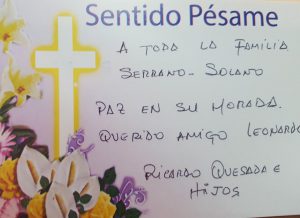 Sentido Pésame
A TODA LA FAMILIA
SERRANO - SOLANO
PAZ EN SU MORADA.
QUERIDO AMIGO LEONARDO
RICARDO QUESADA E
HIJOS